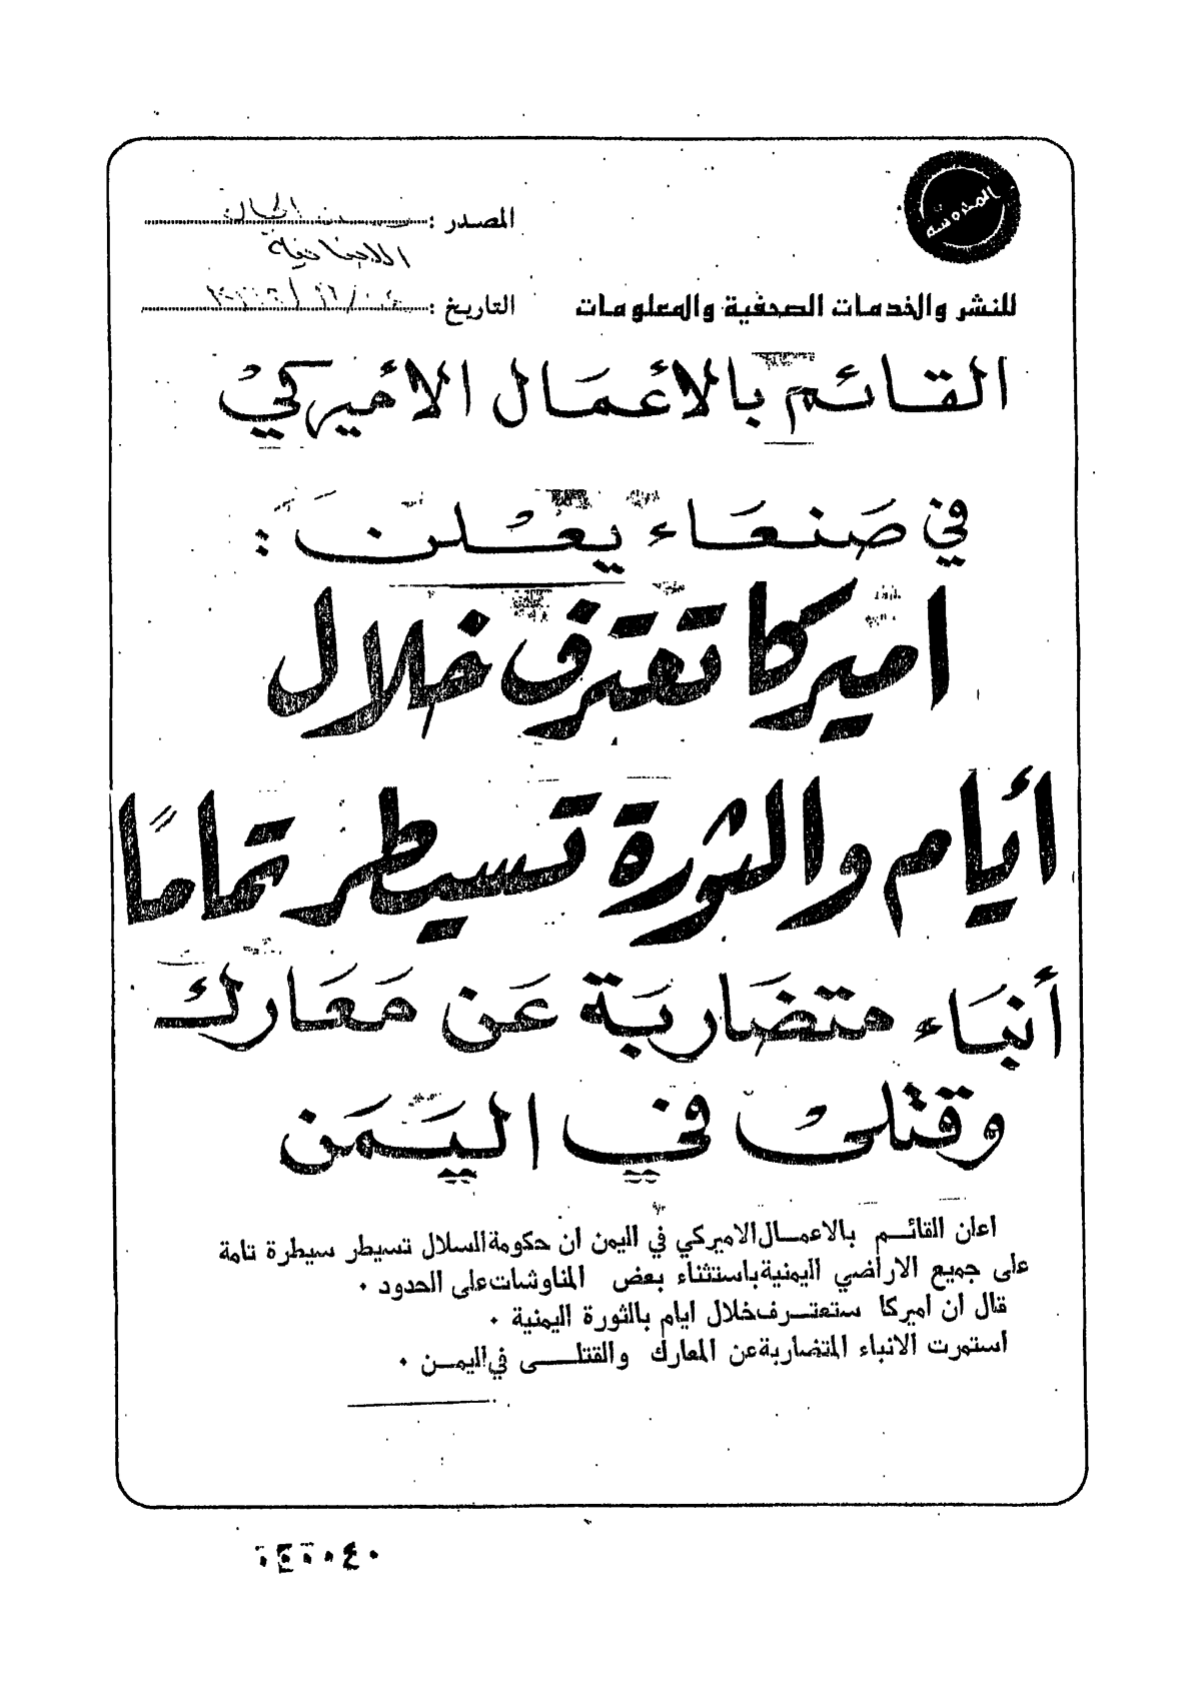 المحروسة
المصدر :
اللبنانية
للنشر والخدمات الصحفية والمعلومات
التاريخ :
القائم بالأعمال الأميركي
في صنعاء يعلن :
اميركا تعترف خلال
أيام والثورة تسيطر تماما
أنباء متضاربة عن معارك
وقتلى في اليمن
اعلن القائم بالاعمال الاميركي في اليمن ان حكومة السلال تسيطر سيطرة تامة
على جميع الاراضي اليمنية باستثناء بعض المناوشات على الحدود .
قال ان اميركا ستعترف خلال ايام بالثورة اليمنية .
استمرت الانباء المتضاربة عن المعارك والقتلى في اليمن .